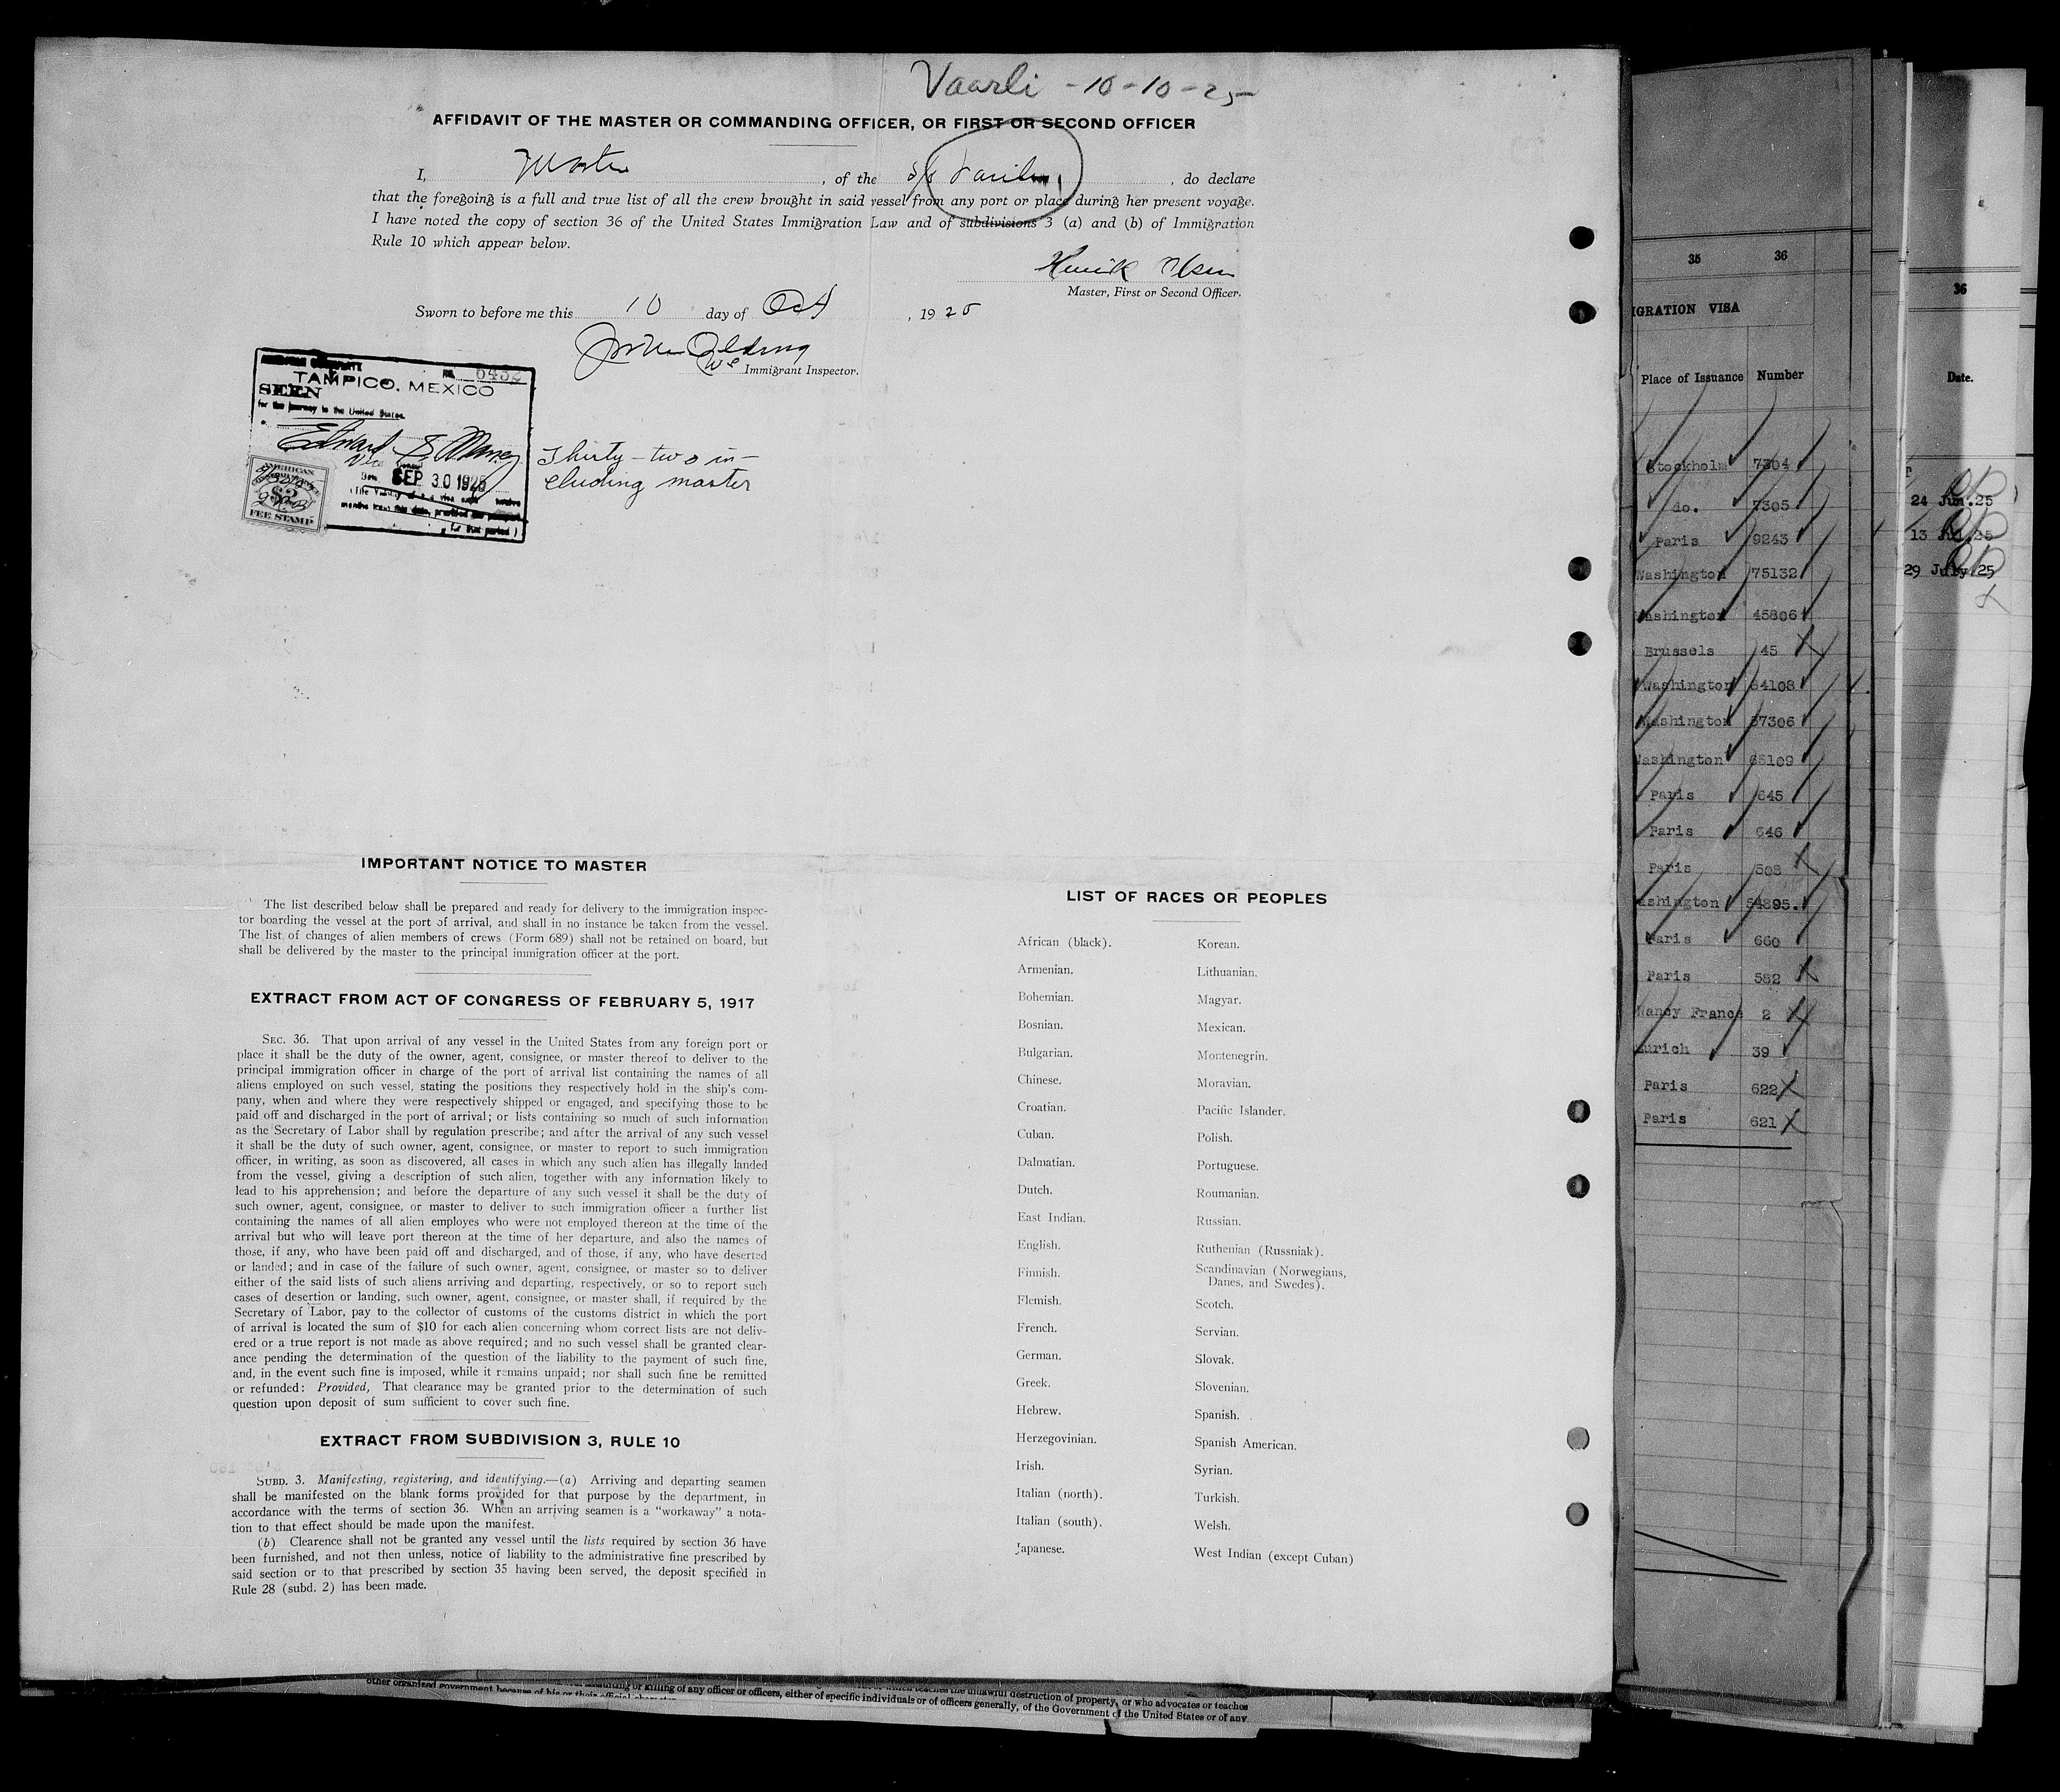 Vaarli - 10-10-25
AFFIDAVIT OF THE MASTER OR COMMANDING OFFICER, OR FIRST OR SECOND OFFICER
I, Master, of the S/S, do declare
that the foregoing is a full and true list of all the crew brought in said vessel from any port or place during her present voyage.
I have noted the copy of section 36 of the United States Immigration Law and of subdivisions 3 (a) and (b) of Immigration
Rule 10 which appear below.
Henrik Olsen
Master, First or Second Officer.
Sworn to before me this 10 day of Oct, 1925
Immigrant Inspector.
No. 6432
TAMPICO, MEXICO
SEEN
for the journey to the United States.
Edward S Maney
Vice
Date SEP 30 1925
AMERICAN
$2
FEE STAMP
Thirty-two in-
cluding master
IMPORTANT NOTICE TO MASTER
The list described below shall be prepared and ready for delivery to the immigration inspec-
tor boarding the vessel at the port of arrival, and shall in no instance be taken from the vessel.
The list of changes of alien members of crews (Form 689) shall not be retained on board, but
shall be delivered by the master to the principal immigration officer at the port.
EXTRACT FROM ACT OF CONGRESS OF FEBRUARY 5, 1917
SEC. 36. That upon arrival of any vessel in the United States from any foreign port or
place it shall be the duty of the owner, agent, consignee, or master thereof to deliver to the
principal immigration officer in charge of the port of arrival list containing the names of all
aliens employed on such vessel, stating the positions they respectively hold in the ship's com-
pany, when and where they were respectively shipped or engaged, and specifying those to be
paid off and discharged in the port of arrival; or lists containing so much of such information
as the Secretary of Labor shall by regulation prescribe; and after the arrival of any such vessel
it shall be the duty of such owner, agent, consignee, or master to report to such immigration
officer, in writing, as soon as discovered, all cases in which any such alien has illegally landed
from the vessel, giving a description of such alien, together with any information likely to
lead to his apprehension; and before the departure of any such vessel it shall be the duty of
such owner, agent, consignee, or master to deliver to such immigration officer a further list
containing the names of all alien employes who were not employed thereon at the time of the
arrival but who will leave port thereon at the time of her departure, and also the names of
those, if any, who have been paid off and discharged, and of those, if any, who have deserted
or landed; and in case of the failure of such owner, agent, consignee, or master so to deliver
either of the said lists of such aliens arriving and departing, respectively, or so to report such
cases of desertion or landing, such owner, agent, consignee, or master shall, if required by the
Secretary of Labor, pay to the collector of customs of the customs district in which the port
of arrival is located the sum of $10 for each alien concerning whom correct lists are not deliv-
ered or a true report is not made as above required; and no such vessel shall be granted clear-
ance pending the determination of the question of the liability to the payment of such fine,
and, in the event such fine is imposed, while it remains unpaid; nor shall such fine be remitted
or refunded: Provided, That clearance may be granted prior to the determination of such
question upon deposit of sum sufficient to cover such fine.
EXTRACT FROM SUBDIVISION 3, RULE 10
SUBD. 3. Manifesting, registering, and identifying.—(a) Arriving and departing seamen
shall be manifested on the blank forms provided for that purpose by the department, in
accordance with the terms of section 36. When an arriving seamen is a "workaway" a nota-
tion to that effect should be made upon the manifest.
(b) Clearance shall not be granted any vessel until the lists required by section 36 have
been furnished, and not then unless, notice of liability to the administrative fine prescribed by
said section or to that prescribed by section 35 having been served, the deposit specified in
Rule 28 (subd. 2) has been made.
LIST OF RACES OR PEOPLES
African (black).
Armenian.
Bohemian.
Bosnian.
Bulgarian.
Chinese.
Croatian.
Cuban.
Dalmatian.
Dutch.
East Indian.
English.
Finnish.
Flemish.
French.
German.
Greek.
Hebrew.
Herzegovinian.
Irish.
Italian (north).
Italian (south).
Japanese.
Korean.
Lithuanian.
Magyar.
Mexican.
Montenegrin.
Moravian.
Pacific Islander.
Polish.
Portuguese.
Roumanian.
Russian.
Ruthenian (Russniak).
Scandinavian (Norwegians,
Danes, and Swedes).
Scotch.
Servian.
Slovak.
Slovenian.
Spanish.
Spanish American.
Syrian.
Turkish.
Welsh.
West Indian (except Cuban)
35 36
IGRATION VISA
Place of Issuance Number
Stockholm 7304
do. 7305
Paris 9243
Washington 75132
Washington 45806
Brussels 45
Washington 64108
Washington 57306
Washington 65109
Paris 645
Paris 646
Paris 508
ashington 54895.
Paris 660
Paris 582
Nancy France 2
urich 39
Paris 622
Paris 621
36
Date.
24 Jun.25
13 Jul.25
29 July.25
destruction of property, or who advocates or teaches
killing of any officer or officers, either of specific individuals or of officers generally, of the Government of the United States or of any
other organized government because of his or their official character